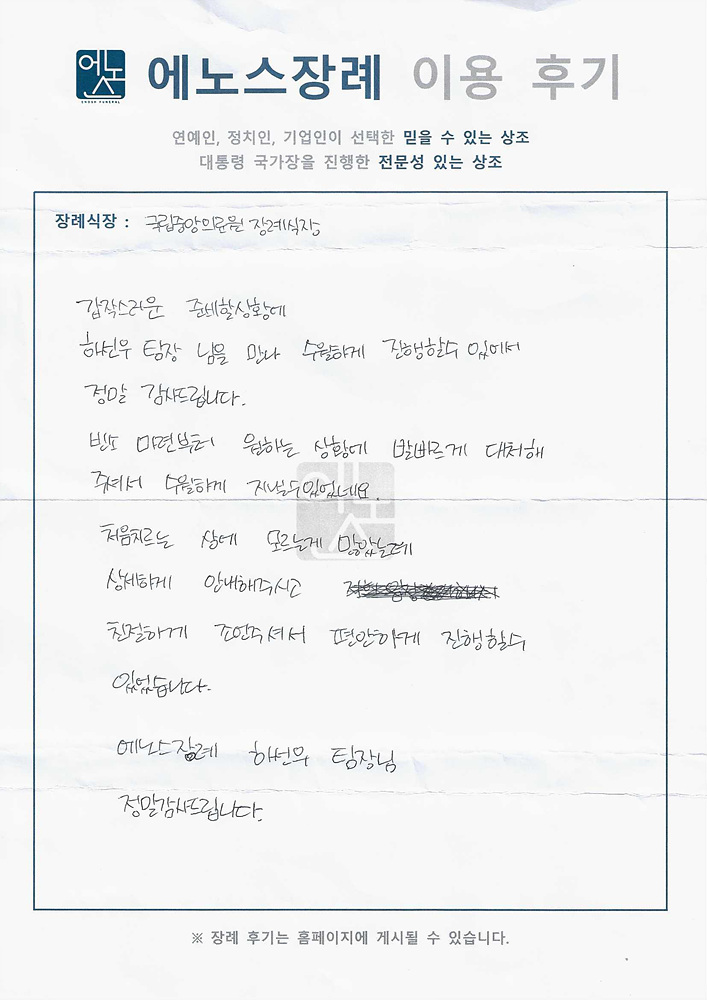 에노스
ENOSE FUNERAL
에노스장례 이용 후기
연예인, 정치인, 기업인이 선택한 믿을 수 있는 상조
대통령 국가장을 진행한 전문성 있는 상조
장례식장 : 국립중앙의료원 장례식장
갑작스러운 준비할상황에
하선우 팀장 님을 만나 수월하게 진행할수 있어서
정말 감사드립니다.
빈소 마련부터 원하는 상황에 발빠르게 대처해
주셔서 수월하게 지낼수있었네요.
처음치르는 상에 모르는게 많았는데
상세하게 안내해주시고
친절하게 조언주셔서 편안하게 진행할수
있었습니다.
에노스장례 하선우 팀장님
정말감사드립니다.
※ 장례 후기는 홈페이지에 게시될 수 있습니다.